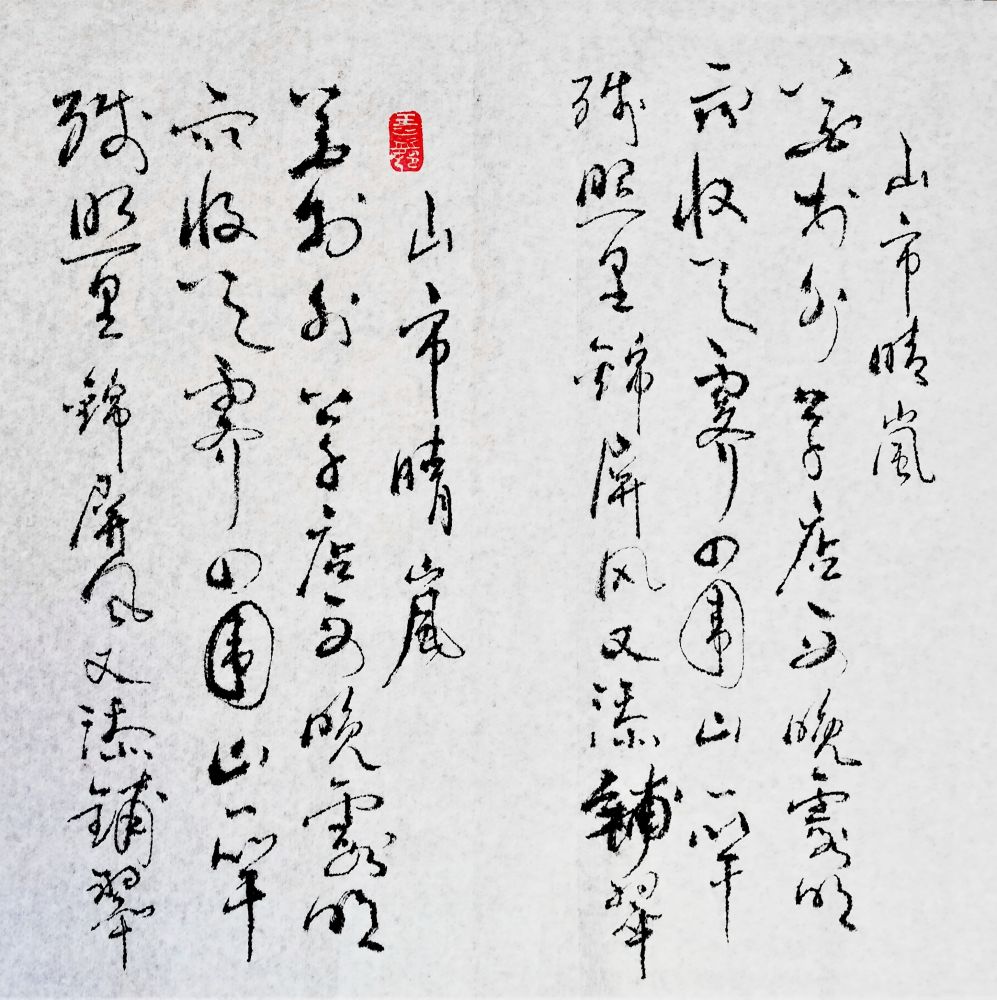 山市晴嵐
花村外草店西晚霞明
雨收天霽四圍山一竿
殘照里錦屏风又添鋪翠
山市晴嵐
花村外草店西晚霞明
雨收天霽四圍山一竿
殘照里錦屏风又添鋪翠